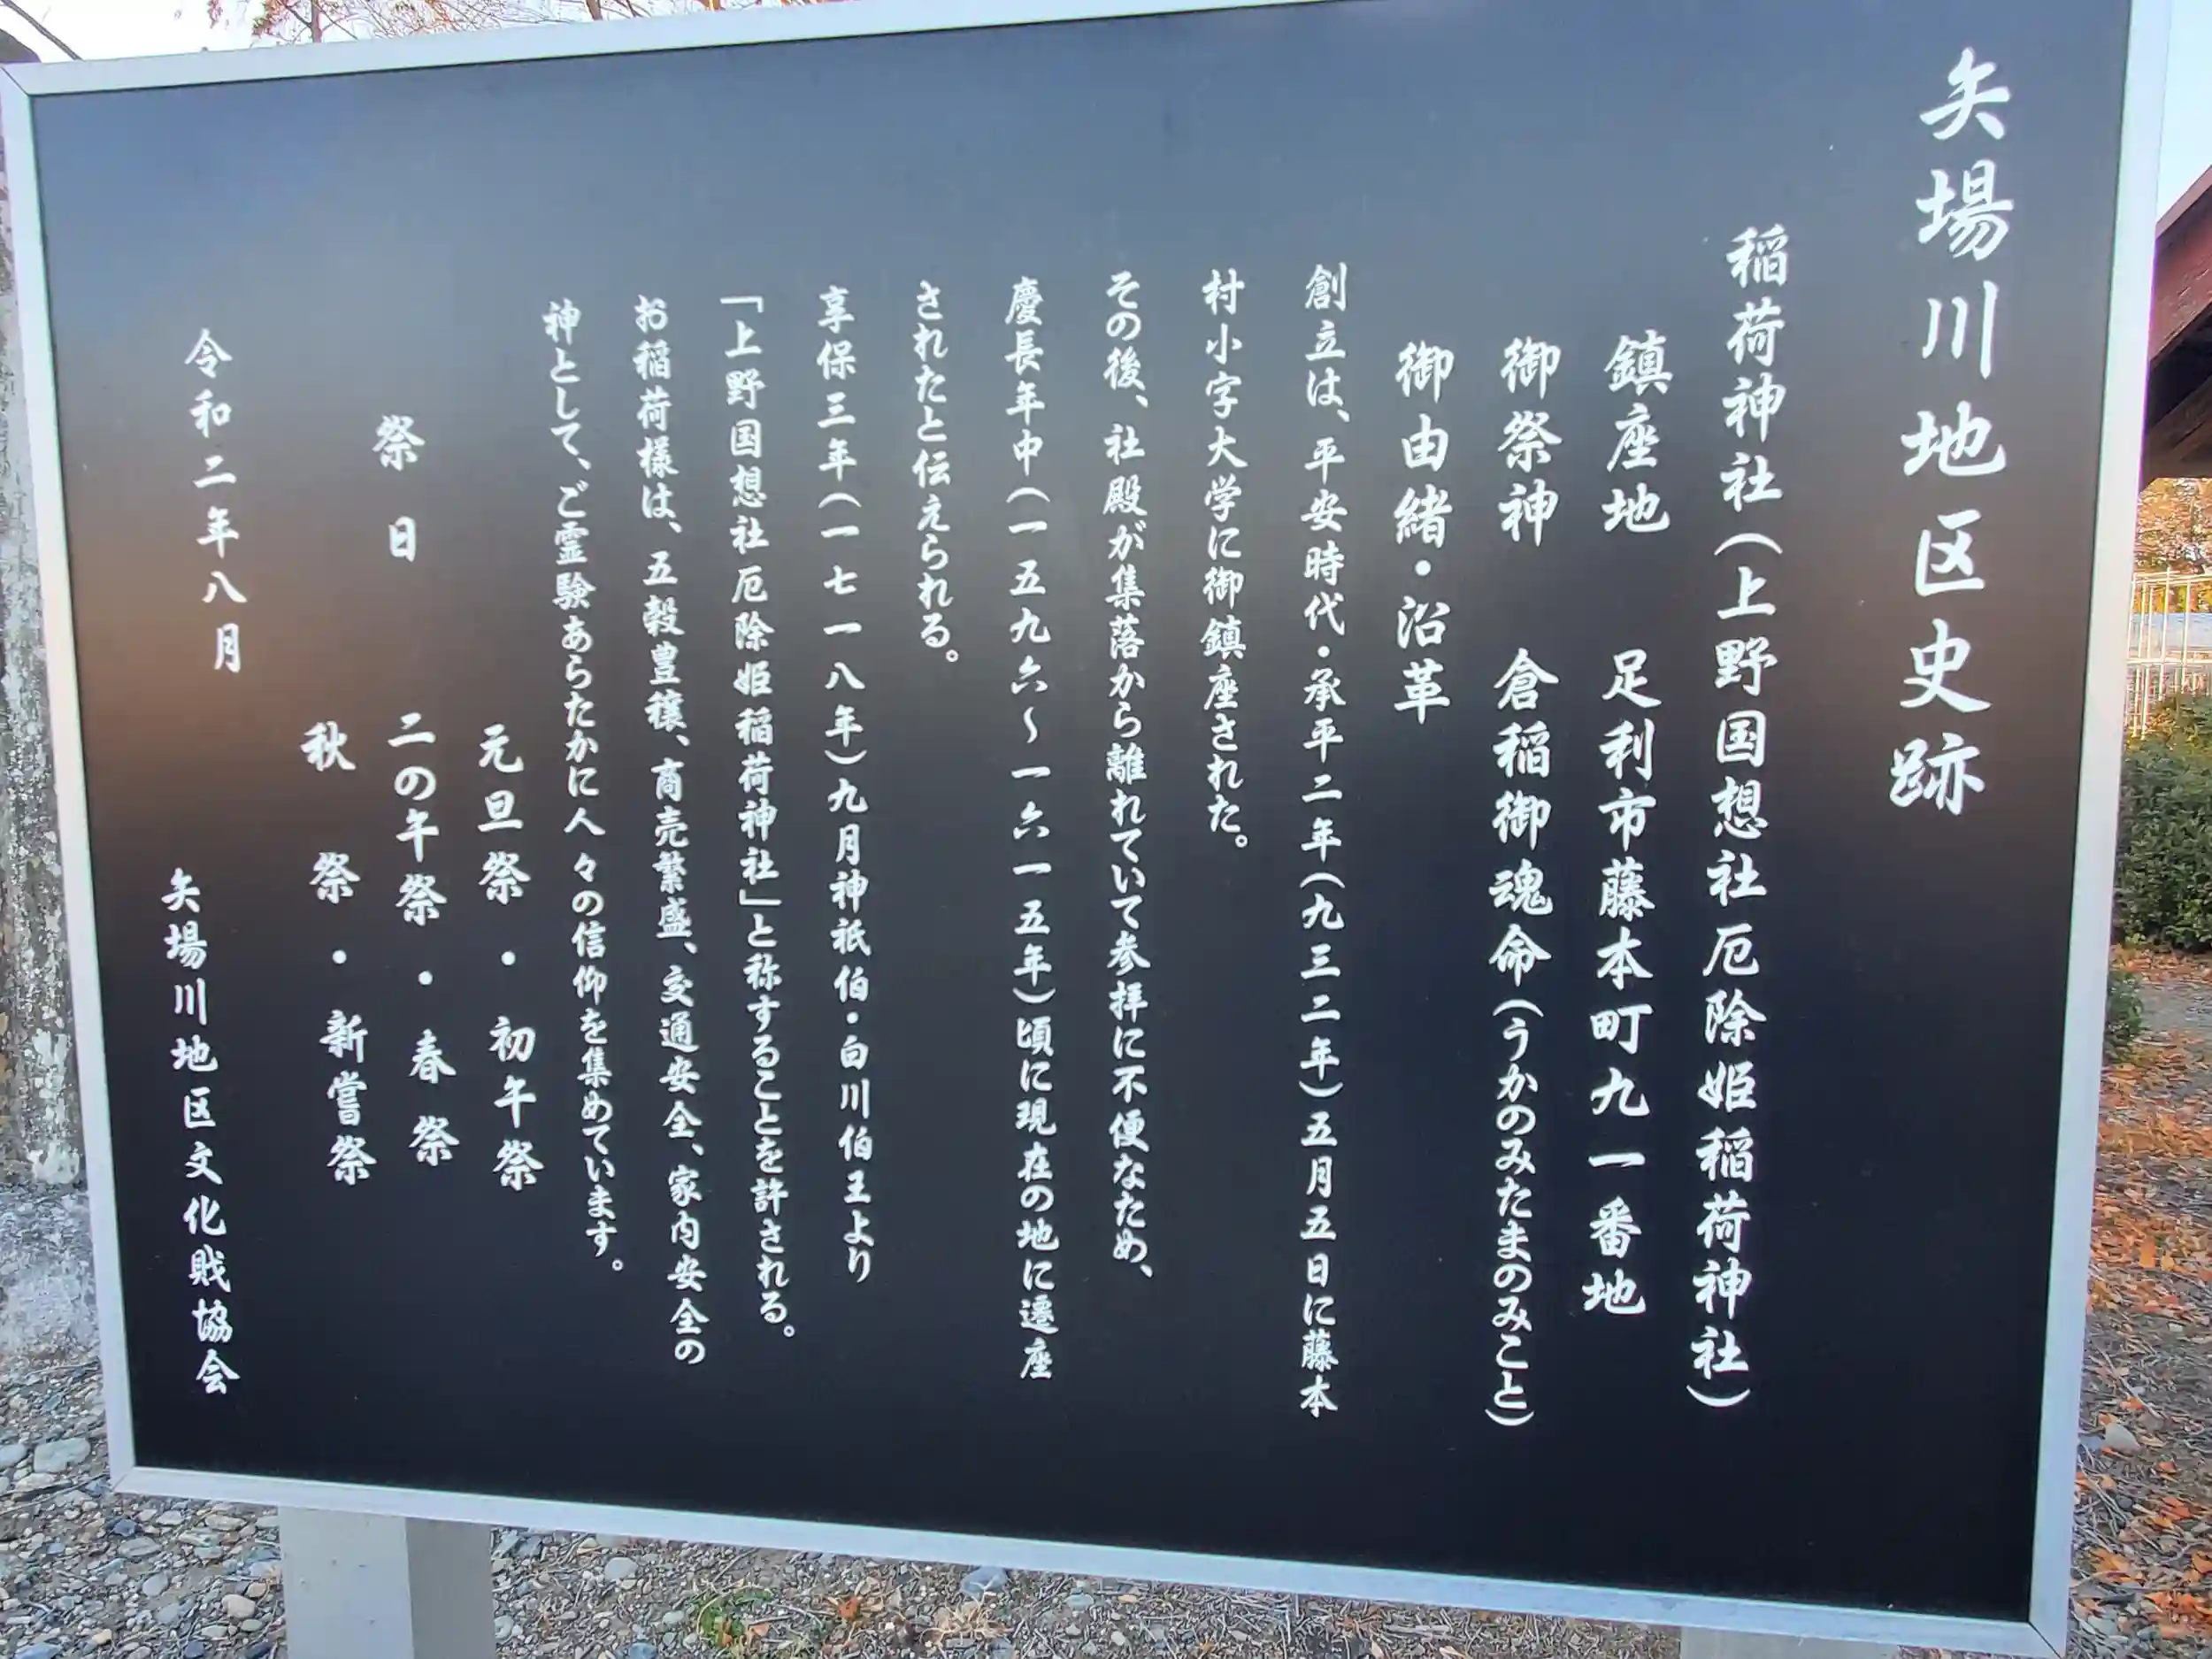 矢場川地区史跡
稲荷神社(上野国想社厄除姫稲荷神社)
鎮座地 足利市藤本町九一番地
御祭神 倉稲御魂命(うかのみたまのみこと)
御由緒・沿革
創立は、平安時代・承平二年(九三二年)五月五日に藤本
村小字大学に御鎮座された。
その後、社殿が集落から離れていて参拝に不便なため、
慶長年中(一五九六~一六一五年)頃に現在の地に遷座
されたと伝えられる。
享保三年(一七一八年)九月神祇伯・白川伯王より
「上野国想社厄除姫稲荷神社」と称することを許される。
お稲荷様は、五穀豊穣、商売繁盛、交通安全、家内安全の
神として、ご霊験あらたかに人々の信仰を集めています。
元旦祭・初午祭
祭日 二の午祭・春祭
秋祭・新嘗祭
令和二年八月
矢場川地区文化財協会